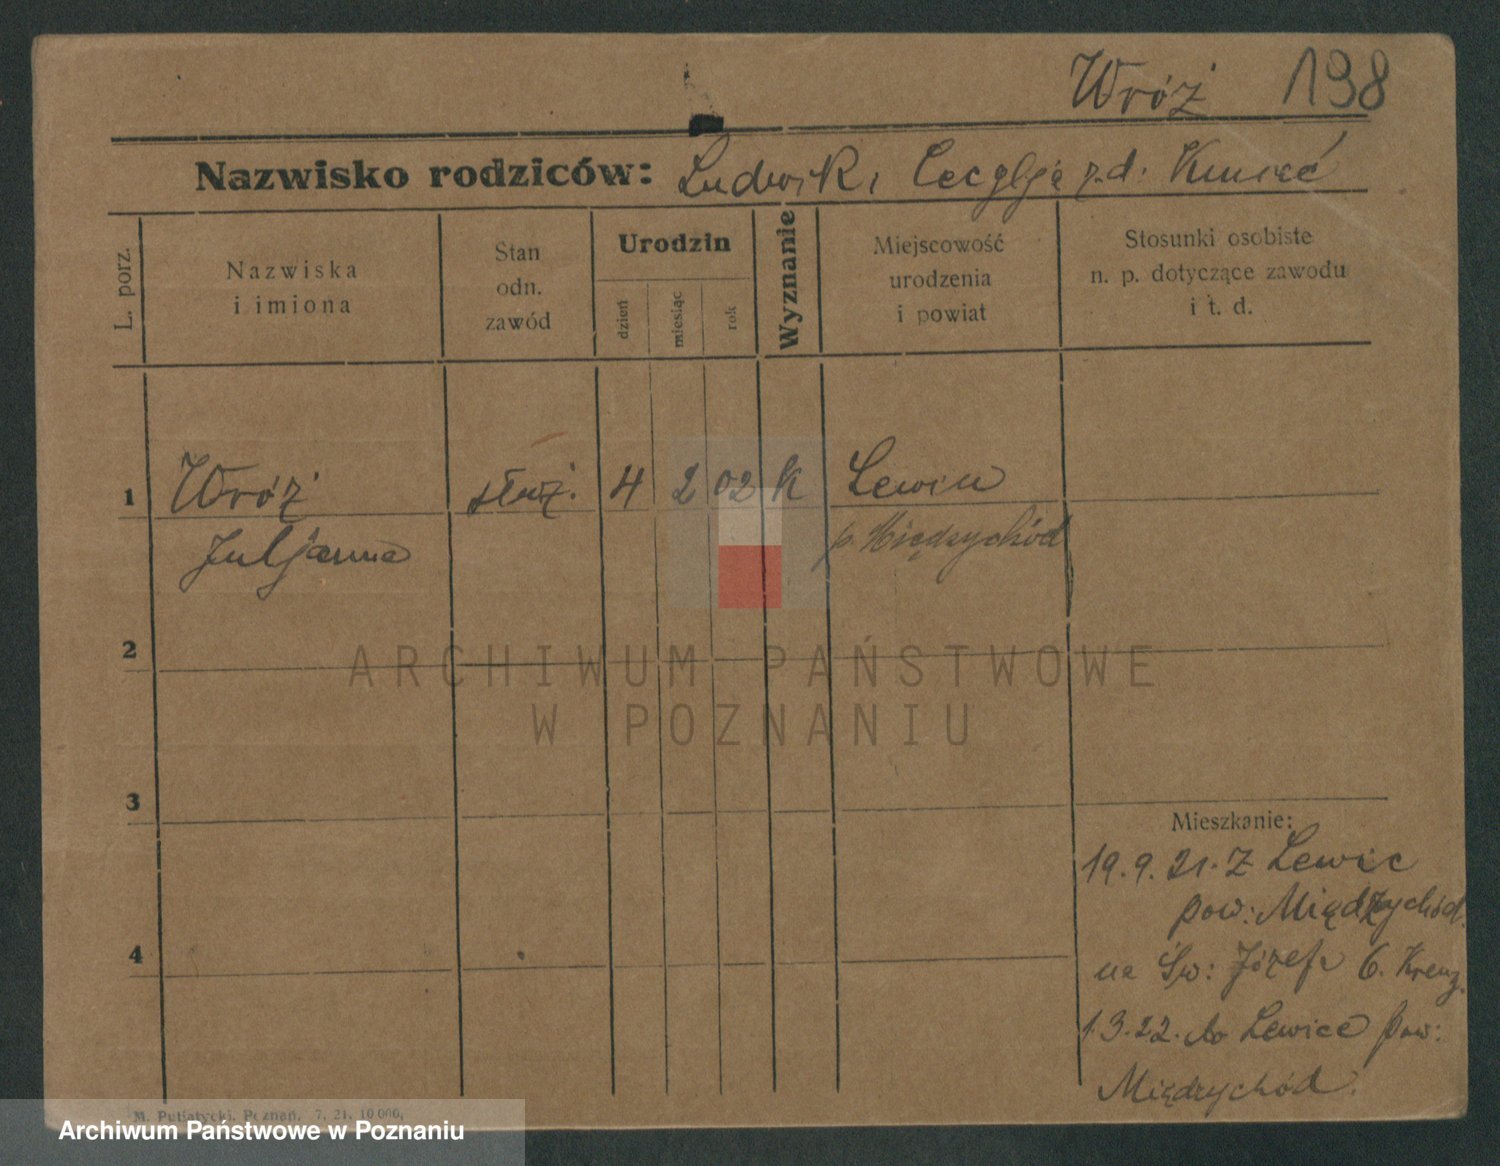 Wróż 198
Nazwisko rodziców: Ludwik i Cecylja z d. Kmieć
L. porz.
Nazwiska
i imiona
Stan
odn.
zawód
Urodzin
dzień
miesiąc
rok
Wyznanie
Miejscowość
urodzenia
i powiat
Stosunki osobiste
n. p. dotyczące zawodu
i t. d.
1 Wróż służ. 4 2 02 k Lewin
Juljanna p. Międzychód
2
3
4
Mieszkanie:
19.9.21. z Lewic
pow: Międzychód
na Św: Józefa 6. Kreuz.
1.3.22. do Lewice pow:
Międzychód.
ARCHIWUM PAŃSTWOWE
W POZNANIU
M. Putiatycki, Poznań. 7. 21. 10 000.
Archiwum Państwowe w Poznaniu